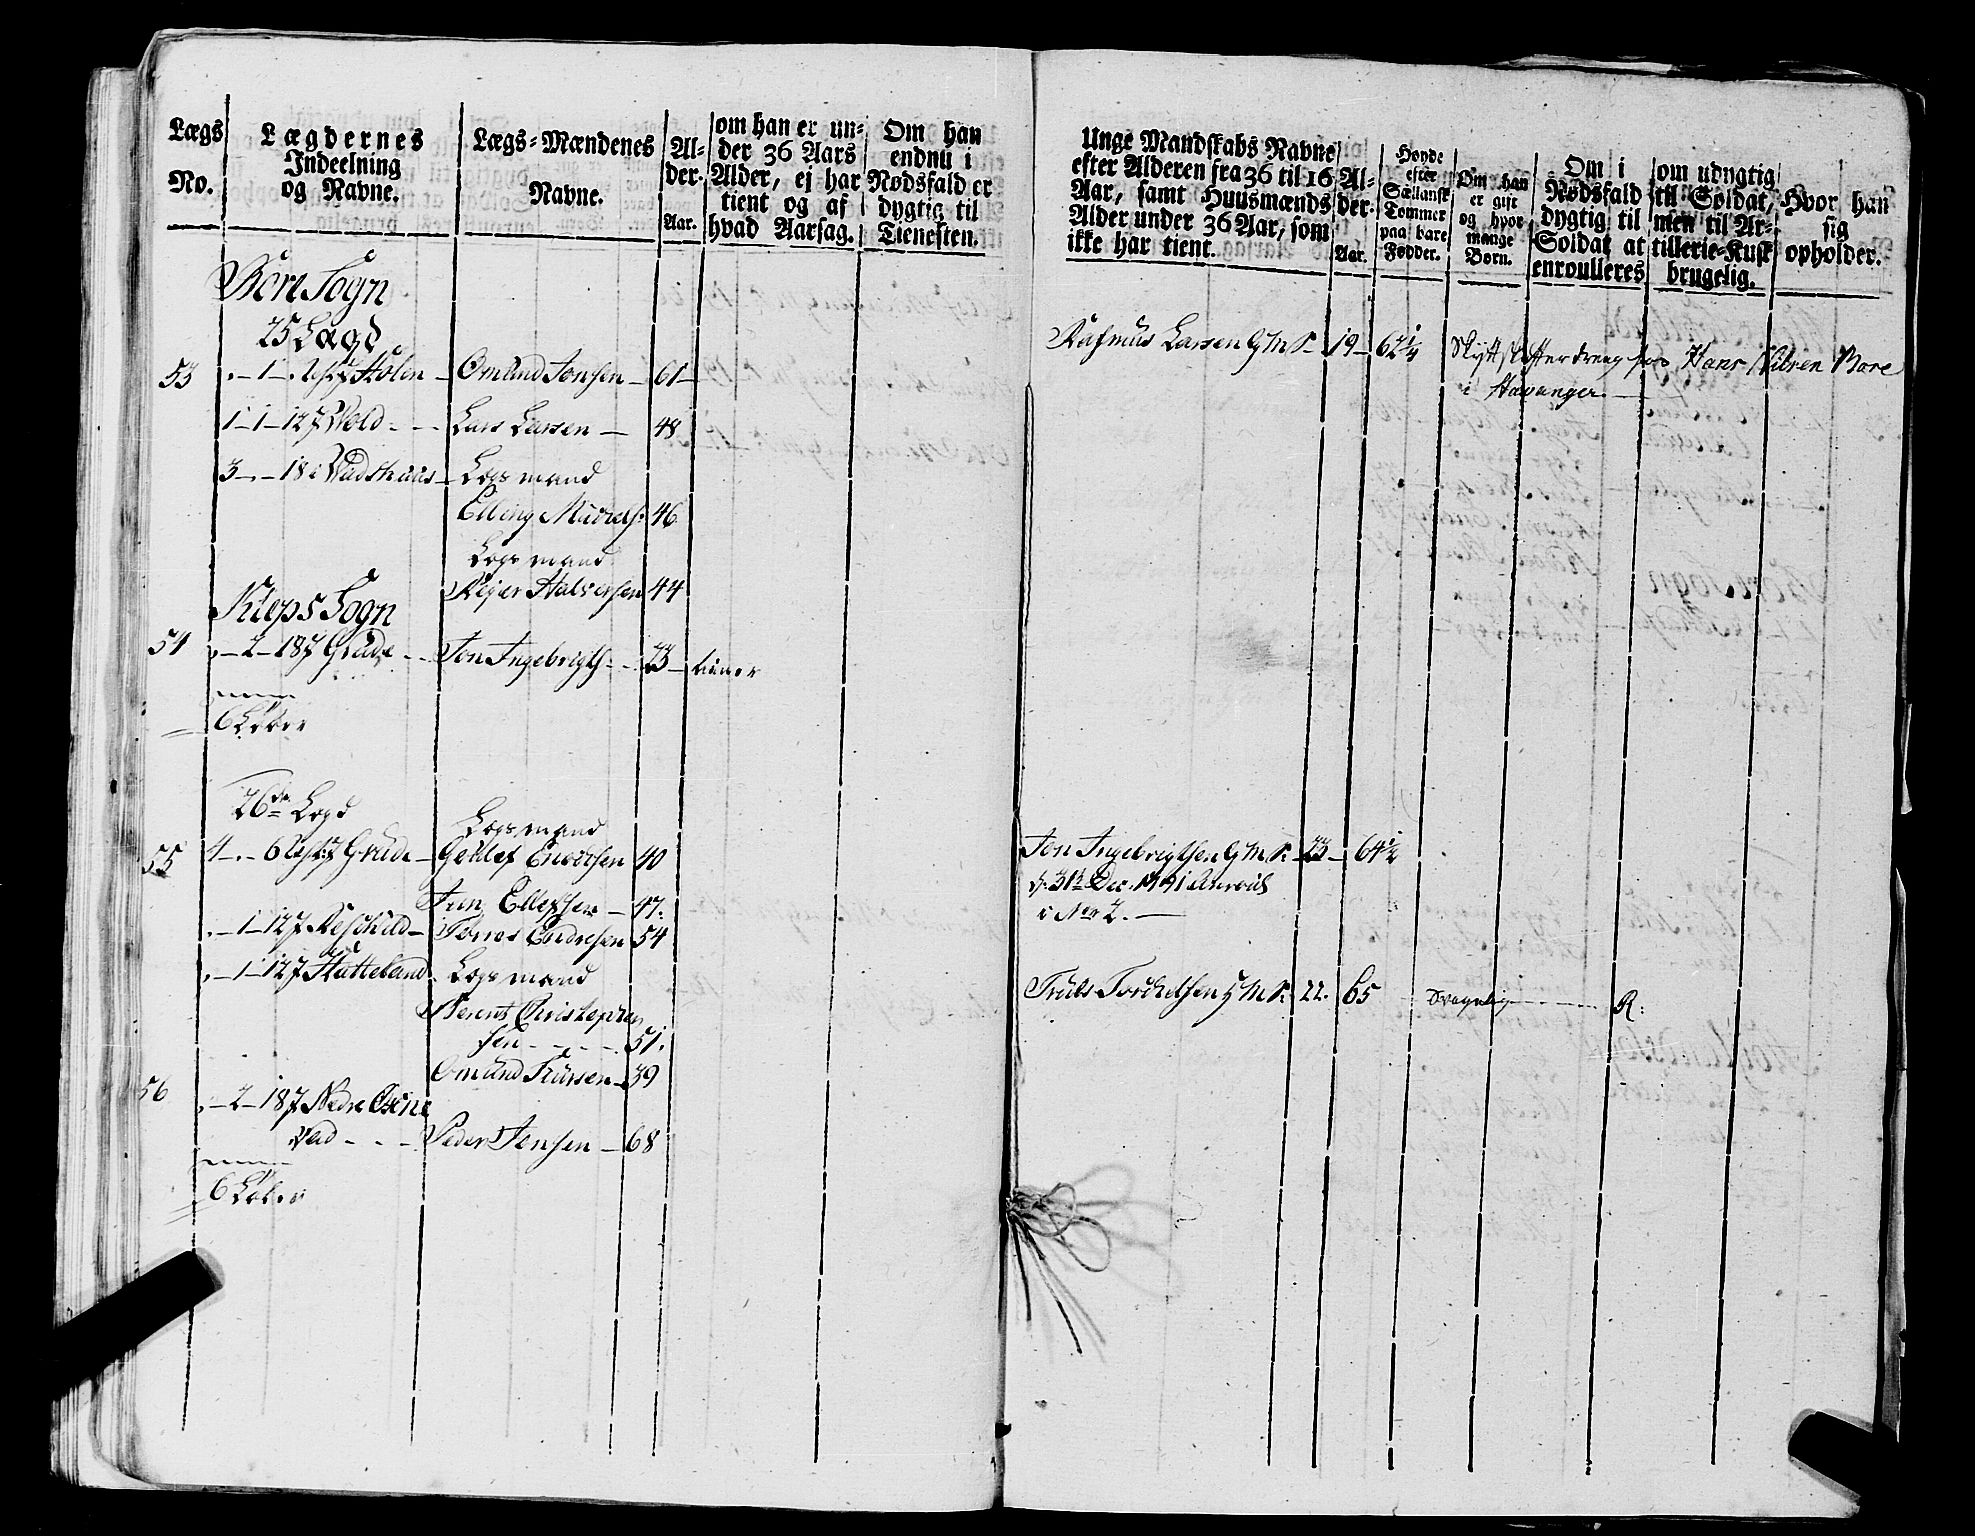 Lægs No.
Lægdernes Indeelning og Navne.
Lægs-Mændenes Navne.
Al-der. Aar.
om han er un-der 36 Aars Alder, ej har tient og af hvad Aarsag.
Om han endnu i Nødsfald er dygtig til Tienesten.
Bore Sogn
25 Lægd
53 Holen Omund Jonsen 61
1 - 1 - 127 Wold Lars Larsen 48
3 - 18 Vadshuus Logsmand
Elling 46
Logsmand
Reier Halversen 44
Kleps Sogn
54 2 - 187 Grude Jon Ingebrigts 23
6 Løber
26de Logd
Logsmand
55 4 6 Grude 40
Ellefsen 47.
1 - 127 Tørres Endresen 54
1 - 127 Hatteland Logsmand
Berent Christophersen 51.
Omund 39
56 2 - 187 Nedre
Vad Peder Jensen 68
6 Løber
Unge Mandskabs Navne efter Alderen fra 36 til 16 Aar, samt Huusmænds Alder under 36 Aar, som ikke har tient.
Al-der. Aar.
Høyde efter Sællansk Tommer paa bare Fødder.
Om han er gift og hvor mange Børn.
Om i Nødsfald dygtig til Soldat at enroulleres
om udygtig til Soldat, men til Ar-tillerie-Kusk brugelig.
Hvor han sig opholder.
Rasmus Larsen G M S 19 62 1/4 Hans Bore
i Stavanger.
Jon Ingebrigtsen G M S 23 64 1/2
d: 31te Dec. 1791
i No 2.
Truls Torkelsen H M S 22. 65 Svagelig R: